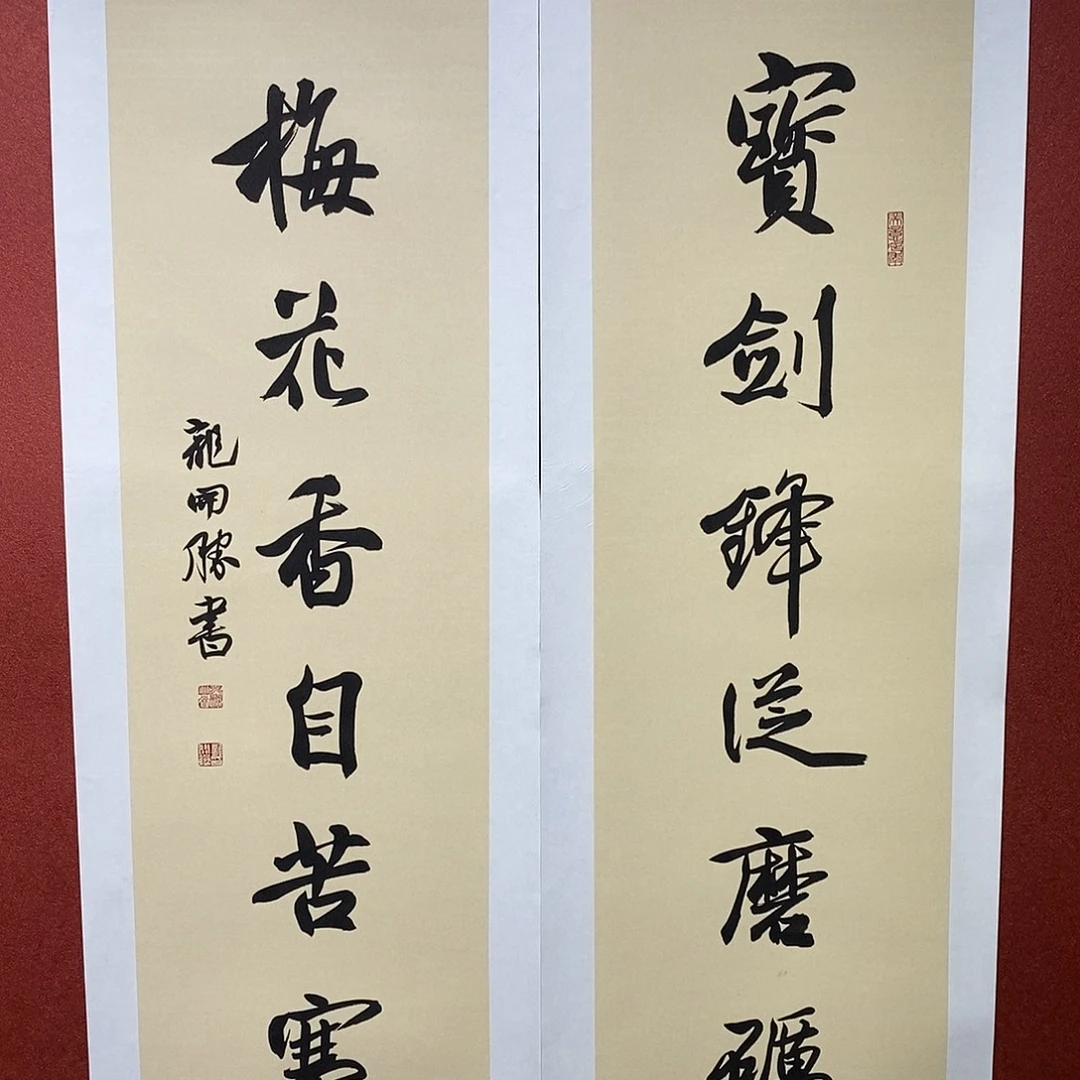 寶劍鋒從磨礪
梅花香自苦寒
龍開勝書